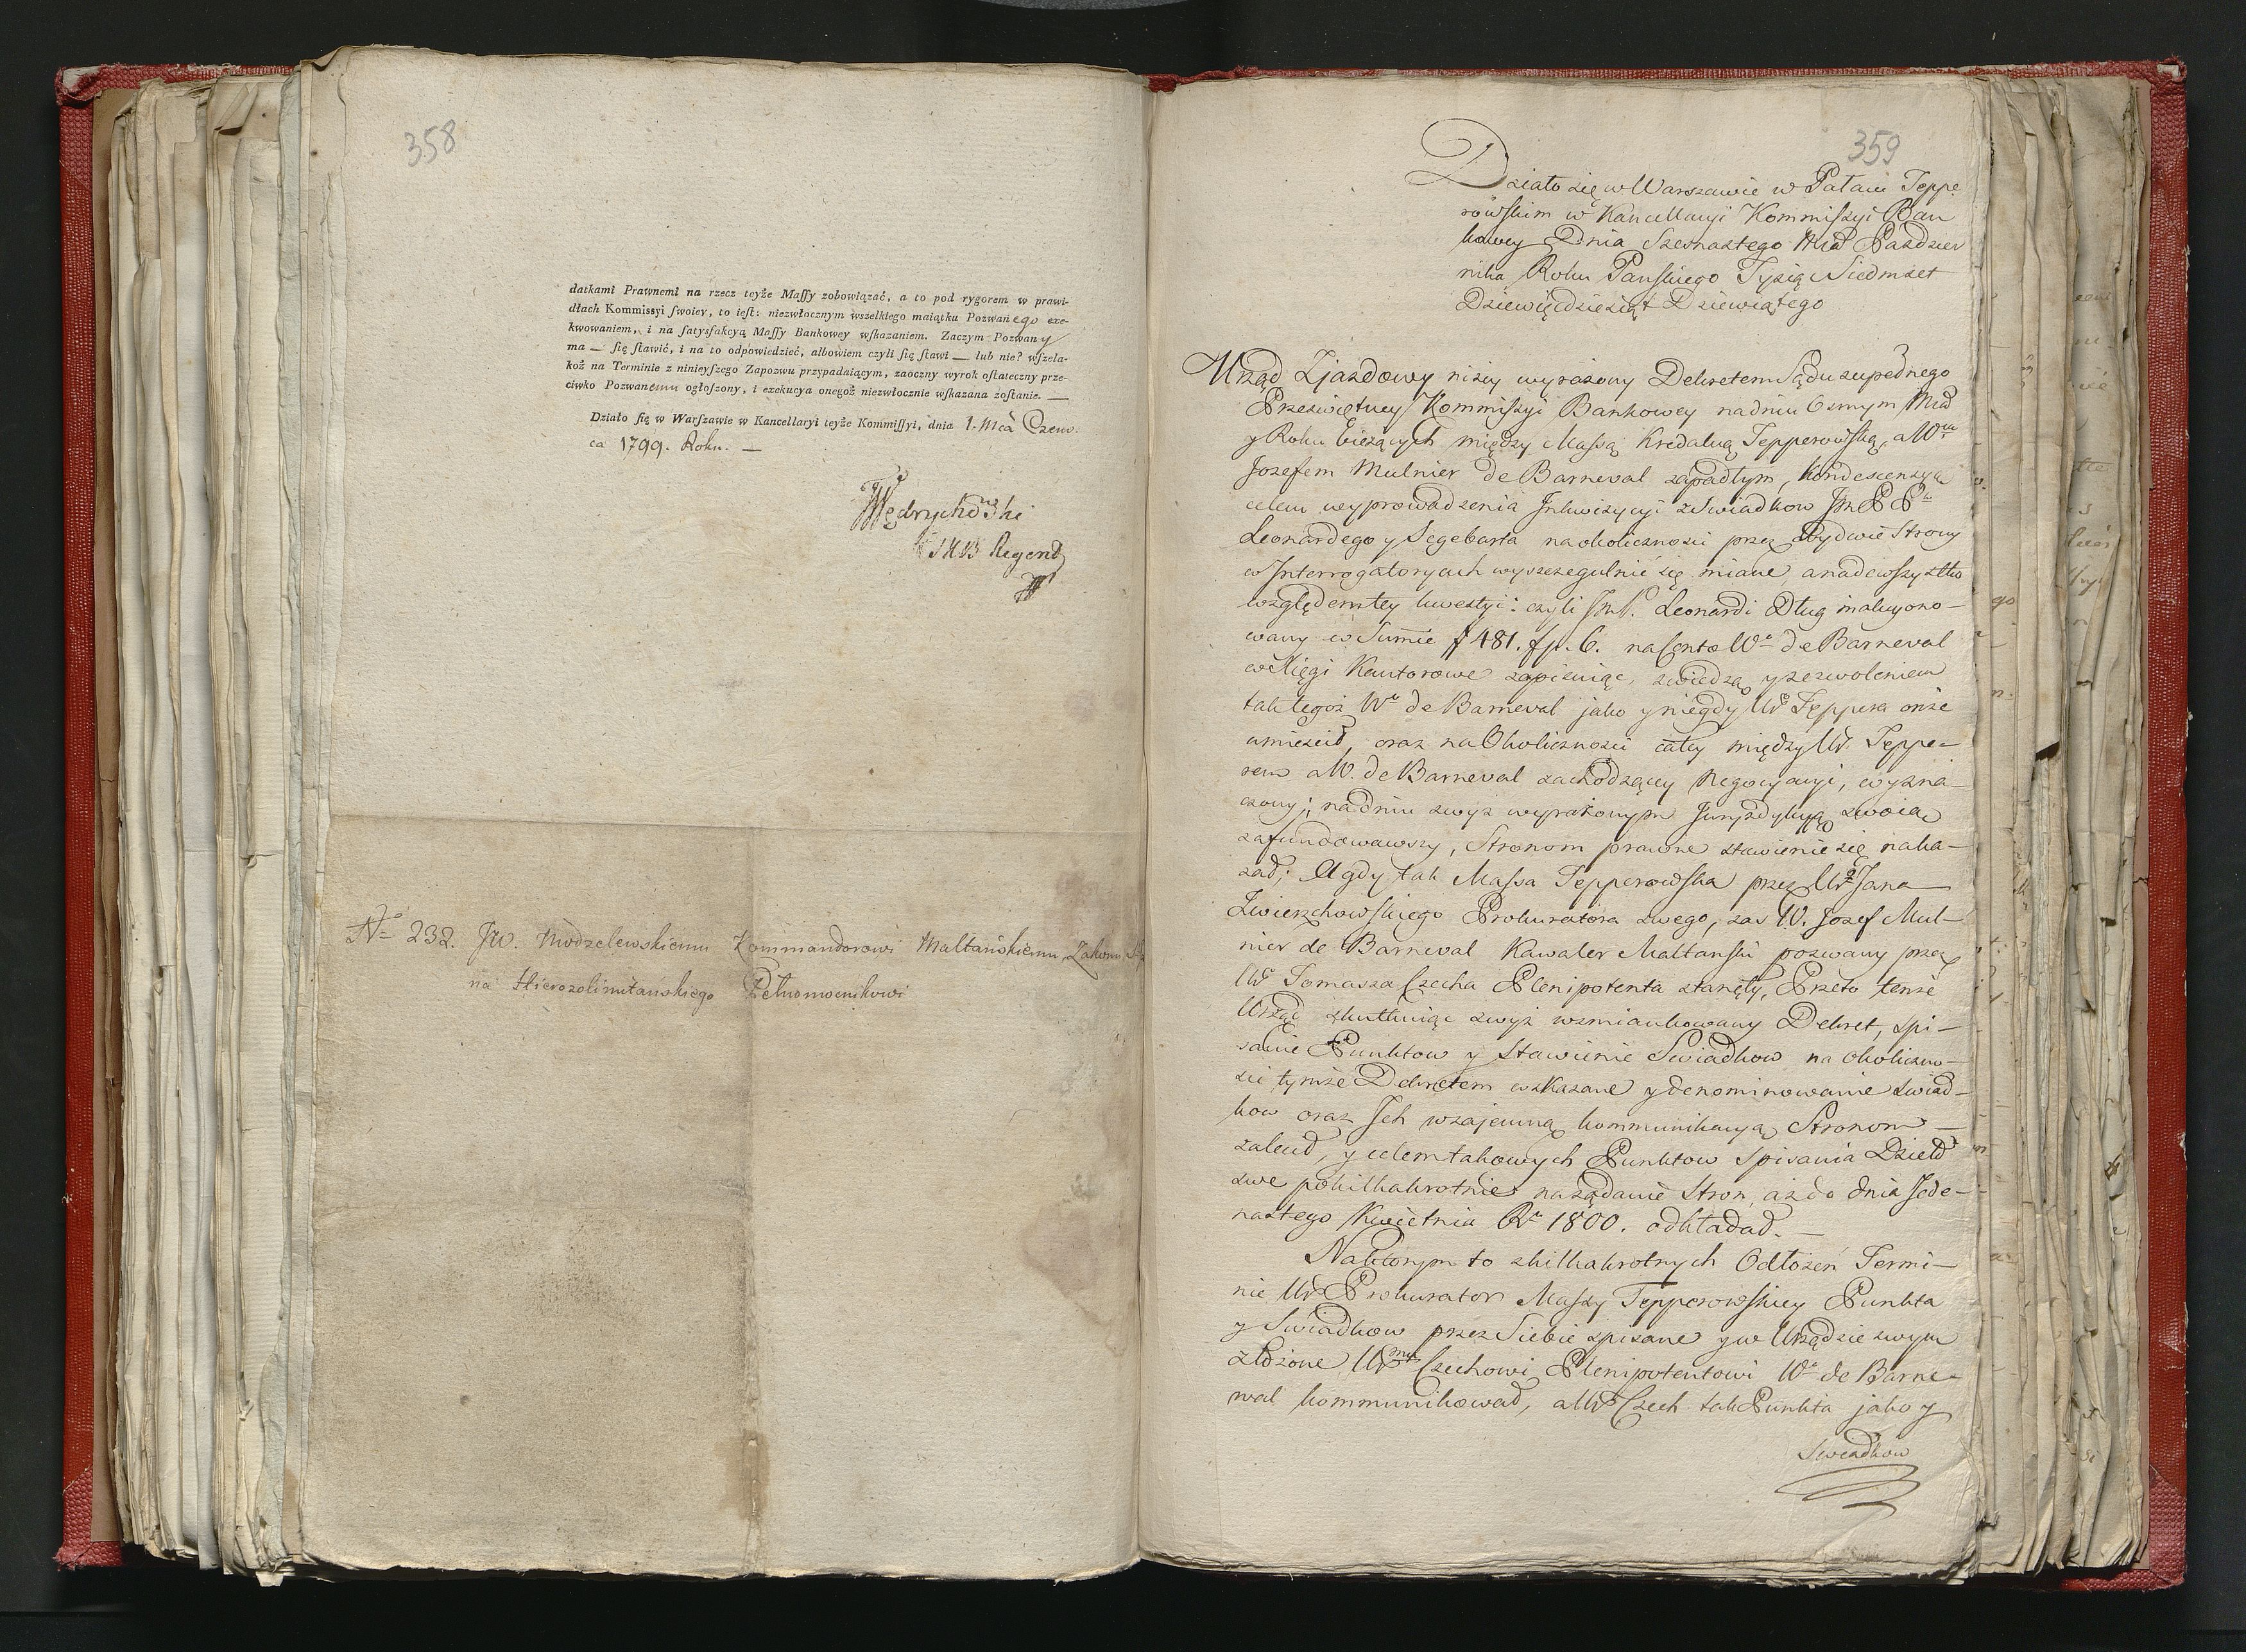 358
datkami Prawnemi na rzecz teyże Maſſy zobowiązać, a to pod rygorem w prawi-
dłach Kommissyi ſwoiey, to ieſt: niezwłocznym wszelkiego maiątku Pozwanego exe-
kwowaniem, i na ſatysfakcyą Maſſy Bankowey wſkazaniem. Zaczym Pozwany
ma — ſię ſtawić, i na to odpowiedzieć, albowiem czyli ſię ſtawi — lub nie? wſzela-
koż na Terminie z ninieyſzego Zapozwu przypadaiącym, zaoczny wyrok oſtateczny prze-
ciwko Pozwanemu ogłoſzony, i exekucya onegoż niezwłocznie wſkazana zoſtanie. —
Działo ſię w Warſzawie w Kancellaryi teyże Kommiſſyi, dnia 1. Mca Czerw-
ca 1799. Roku. —
Wędrychowski
Regent
No 232. JW. Modzelewskiemu Kommandorowi Maltańskiemu Zakonu
na Hierozolimitańskiego Pełnomocnikowi
359
Działo się w Warszawie w Pałacu Teppe
rowſkim w Kancellaryi Kommiſzyi Ban
kowey Dnia Szesnastego Mca Pazdzier
nika Roku Pańſkiego Tysiąc Siedmset
Dziewięcdziesiąt Dziewiątego
Urząd Zjazdowy niżey wyrażony Dekretem Sądu zupełnego
Przeświętney Kommiſzyi Bankowey na dniu Osmym Mca
y Roku bieżących między Massą Kredalną Tepperowſką, a Wm
Jozefem Mulnier de Barneval zapadłym, kondescensyą
celem wyprowadzenia Inkwizycyi z Swiadkow Jm PP
Leonardego y Segebarta na okoliczności przez obydwie Strony
w Interrogatoryach wyszczegulnić się miane, a nadewszystko
względem tey kwestyi: czyli JmP. Leonardi Dług
w Summie # 481. fp. 6. na Conto Wo de Barneval
w Xięgi Kantorowe zapisuiąc, z wiedzą y zezwoleniem
tak tegoż Wo de Barneval jako y niegdy W Teppera onże
umieścił, oraz na Okoliczności całey między W. Teppe-
rem a W. de Barneval zachodzącey Negocyacyi, wyzna-
czony; na dniu zwyż wyrażonym Juryzdykcyą swoią
zafundowawszy, Stronom prawne stawienie się naka-
zał; A gdy tak Massa Tepperowska przez W Jana
Zwierzchowſkiego Prokuratora swego, zaś W. Jozef Mul-
nier de Barneval Kawaler Maltanſki pozwany przez
W Tomasza Czecha Plenipotenta stanęły, Przeto tenże
Urząd skutkuiąc zwyż wzmiankowany Dekret, spi-
sanie Punktow y Stawienie Swiadkow na okoliczno-
ści tymże Dekretem wskazane y denominowanie Swiad-
kow oraz Ich wzajemną kommunikacyą Stronom —
zalecił, y celem takowych Punktow Spisania Dzieło
swe pokilkakrotnie na żądanie Stron, aż do dnia Jede-
nastego Kwietnia Ru 1800. odkładał. —
Na którym to z kilkakrotnych Odłożeń Termi-
nie W Prokurator Maſsy Tepperowſkiey Punkta
y Swiadkow przez Siebie spisane y w Urzędzie swym
złożone Wmu Czechowi Plenipotentowi Wo de Barne-
wal kommunikował, a W Czech tak Punkta jako y
Swiadkow